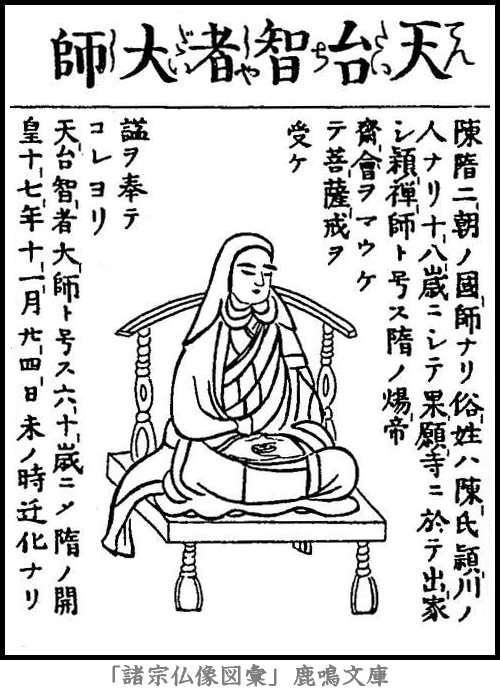 天台智者大師
陳隋二朝ノ國師ナリ俗姓ハ陳氏頴川ノ
人ナリ十八歳ニシテ果願寺ニ於テ出家
シ頴禅師ト号ス隋ノ煬帝
齋會ヲマウケ
テ菩薩戒ヲ
受ケ
諡ヲ奉テ
コレヨリ
天台智者大師ト号ス六十歳ニメ隋ノ開
皇十七年十一月廿四日未ノ時迁化ナリ
「諸宗仏像図彙」鹿鳴文庫